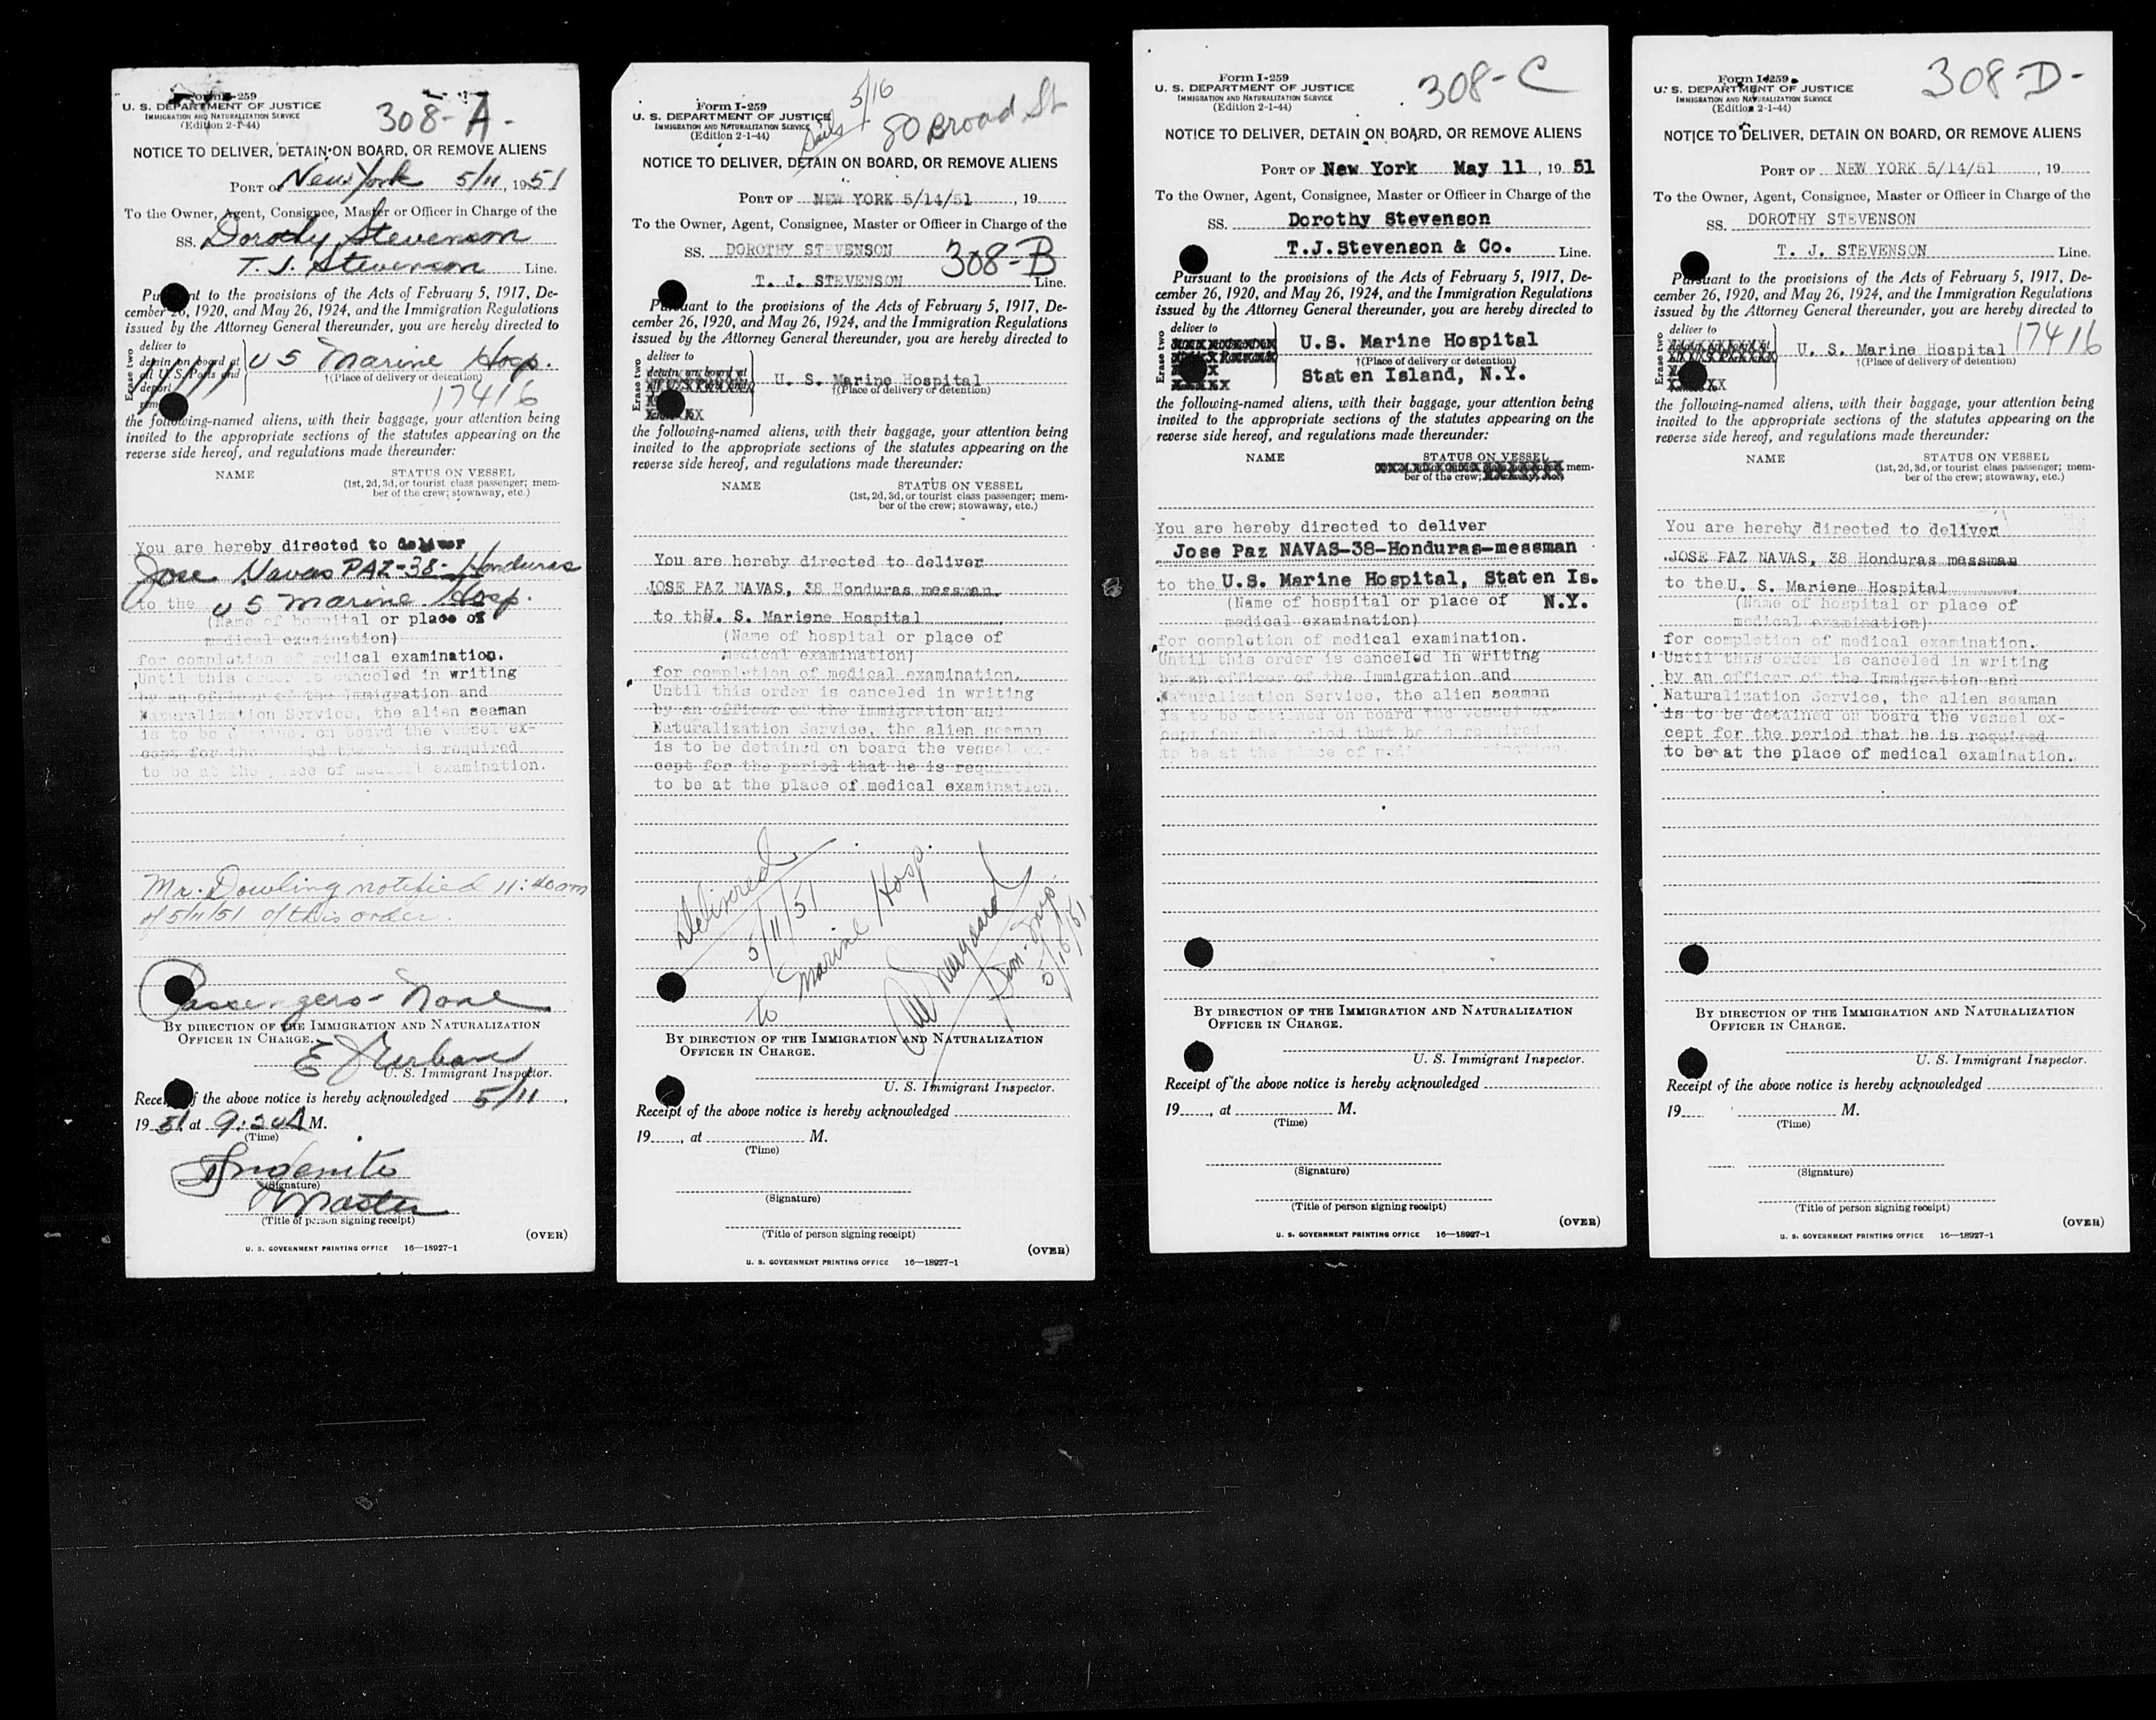 Form I-259
U. S. DEPARTMENT OF JUSTICE
IMMIGRATION AND NATURALIZATION SERVICE
(Edition 2-1-44)
308-A-
NOTICE TO DELIVER, DETAIN ON BOARD, OR REMOVE ALIENS
PORT OF New York 5/11, 1951
To the Owner, Agent, Consignee, Master or Officer in Charge of the
SS. Dorothy Stevenson
T. J. Stevenson Line.
Pursuant to the provisions of the Acts of February 5, 1917, De-
cember 26, 1920, and May 26, 1924, and the Immigration Regulations
issued by the Attorney General thereunder, you are hereby directed to
Erase two
deliver to
detain on board at
all U.S. Ports and
deport
U S Marine Hosp.
†(Place of delivery or detention)
17416
the following-named aliens, with their baggage, your attention being
invited to the appropriate sections of the statutes appearing on the
reverse side hereof, and regulations made thereunder:
NAME STATUS ON VESSEL
(1st, 2d, 3d, or tourist class passenger; mem-
ber of the crew; stowaway, etc.)
You are hereby directed to deliver
Jose Navas PAZ-38-Honduras
to the U S Marine Hosp.
(Name of hospital or place of
medical examination)
for completion of medical examination.
Until this order is canceled in writing
by an officer of the Immigration and
Naturalization Service, the alien seaman
is to be detained on board the vessel ex-
cept for the period that he is required
to be at the place of medical examination.
Mr. Dowling notified 11:40am
of 5/11/51 of this order.
Passengers - None
BY DIRECTION OF THE IMMIGRATION AND NATURALIZATION
OFFICER IN CHARGE.
U. S. Immigrant Inspector.
Receipt of the above notice is hereby acknowledged 5/11,
1951 at 9:20A M.
(Time)
(Signature)
Master
(Title of person signing receipt)
(OVER)
U. S. GOVERNMENT PRINTING OFFICE 16—18927-1
Form I-259
U. S. DEPARTMENT OF JUSTICE
IMMIGRATION AND NATURALIZATION SERVICE
(Edition 2-1-44)
5/16
80 Broad St
NOTICE TO DELIVER, DETAIN ON BOARD, OR REMOVE ALIENS
PORT OF NEW YORK 5/14/51, 19
To the Owner, Agent, Consignee, Master or Officer in Charge of the
SS. DOROTHY STEVENSON
308-B
T. J. STEVENSON Line.
Pursuant to the provisions of the Acts of February 5, 1917, De-
cember 26, 1920, and May 26, 1924, and the Immigration Regulations
issued by the Attorney General thereunder, you are hereby directed to
Erase two
deliver to
detain on board at
U. S. Marine Hospital
†(Place of delivery or detention)
the following-named aliens, with their baggage, your attention being
invited to the appropriate sections of the statutes appearing on the
reverse side hereof, and regulations made thereunder:
NAME STATUS ON VESSEL
(1st, 2d, 3d, or tourist class passenger; mem-
ber of the crew; stowaway, etc.)
You are hereby directed to deliver
JOSE PAZ NAVAS, 38 Honduras messman
to the U. S. Mariene Hospital
(Name of hospital or place of
medical examination)
for completion of medical examination.
Until this order is canceled in writing
by an officer of the Immigration and
Naturalization Service, the alien seaman
is to be detained on board the vessel ex-
cept for the period that he is required
to be at the place of medical examination.
Delivered
5/11/51
to Marine Hosp.
Imm. Insp.
5/16/51
BY DIRECTION OF THE IMMIGRATION AND NATURALIZATION
OFFICER IN CHARGE.
U. S. Immigrant Inspector.
Receipt of the above notice is hereby acknowledged
19, at M.
(Time)
(Signature)
(Title of person signing receipt)
(OVER)
U. S. GOVERNMENT PRINTING OFFICE 16—18927-1
Form I-259
U. S. DEPARTMENT OF JUSTICE
IMMIGRATION AND NATURALIZATION SERVICE
(Edition 2-1-44)
308-C
NOTICE TO DELIVER, DETAIN ON BOARD, OR REMOVE ALIENS
PORT OF New York May 11, 1951
To the Owner, Agent, Consignee, Master or Officer in Charge of the
SS. Dorothy Stevenson
T.J.Stevenson & Co. Line.
Pursuant to the provisions of the Acts of February 5, 1917, De-
cember 26, 1920, and May 26, 1924, and the Immigration Regulations
issued by the Attorney General thereunder, you are hereby directed to
Erase two
deliver to
U.S. Marine Hospital
†(Place of delivery or detention)
Staten Island, N.Y.
the following-named aliens, with their baggage, your attention being
invited to the appropriate sections of the statutes appearing on the
reverse side hereof, and regulations made thereunder:
NAME STATUS ON VESSEL
mem-
ber of the crew;
You are hereby directed to deliver
Jose Paz NAVAS-38-Honduras-messman
to the U.S. Marine Hospital, Staten Is.
(Name of hospital or place of N.Y.
medical examination)
for completion of medical examination.
Until this order is canceled in writing
by an officer of the Immigration and
Naturalization Service, the alien seaman
is to be detained on board the vessel ex-
cept for the period that he is required
to be at the place of medical examination.
BY DIRECTION OF THE IMMIGRATION AND NATURALIZATION
OFFICER IN CHARGE.
U. S. Immigrant Inspector.
Receipt of the above notice is hereby acknowledged
19, at M.
(Time)
(Signature)
(Title of person signing receipt)
(OVER)
U. S. GOVERNMENT PRINTING OFFICE 16—18927-1
Form I-259
U. S. DEPARTMENT OF JUSTICE
IMMIGRATION AND NATURALIZATION SERVICE
(Edition 2-1-44)
308-D-
NOTICE TO DELIVER, DETAIN ON BOARD, OR REMOVE ALIENS
PORT OF NEW YORK 5/14/51, 19
To the Owner, Agent, Consignee, Master or Officer in Charge of the
SS. DOROTHY STEVENSON
T. J. STEVENSON Line.
Pursuant to the provisions of the Acts of February 5, 1917, De-
cember 26, 1920, and May 26, 1924, and the Immigration Regulations
issued by the Attorney General thereunder, you are hereby directed to
Erase two
deliver to
17416
U. S. Marine Hospital
†(Place of delivery or detention)
the following-named aliens, with their baggage, your attention being
invited to the appropriate sections of the statutes appearing on the
reverse side hereof, and regulations made thereunder:
NAME STATUS ON VESSEL
(1st, 2d, 3d, or tourist class passenger; mem-
ber of the crew; stowaway, etc.)
You are hereby directed to deliver
JOSE PAZ NAVAS, 38 Honduras messman
to the U. S. Mariene Hospital
(Name of hospital or place of
medical examination)
for completion of medical examination.
Until this order is canceled in writing
by an officer of the Immigration and
Naturalization Service, the alien seaman
is to be detained on board the vessel ex-
cept for the period that he is required
to be at the place of medical examination.
BY DIRECTION OF THE IMMIGRATION AND NATURALIZATION
OFFICER IN CHARGE.
U. S. Immigrant Inspector.
Receipt of the above notice is hereby acknowledged
19 M.
(Time)
(Signature)
(Title of person signing receipt)
(OVER)
U. S. GOVERNMENT PRINTING OFFICE 16—18927-1